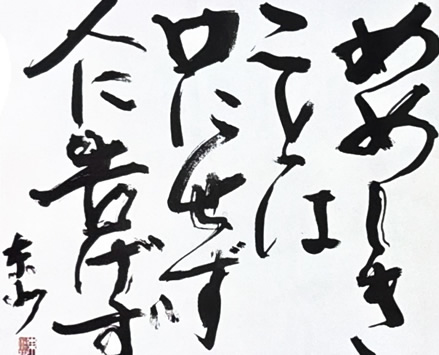 めめしき
ことは
口にせず
人に告げず